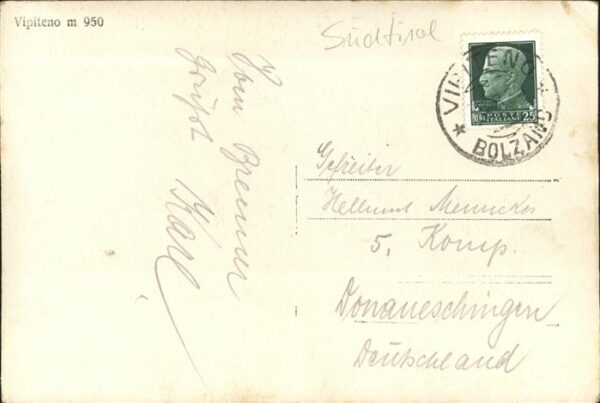 Vipiteno m 950
Südtirol
VIPITENO
BOLZANO
POSTE
ITALIANE 25
Vom Brenner
grüßt
Gefreiter
Hellmut
5. Komp.
Donaueschingen
Deutschland